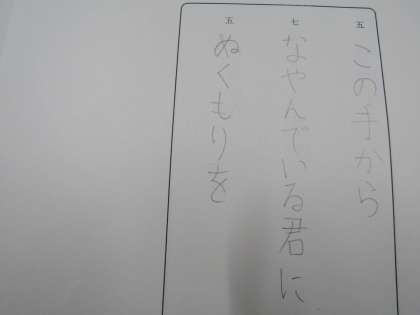 五
この手から
七
なやんでいる君に
五
ぬくもりを